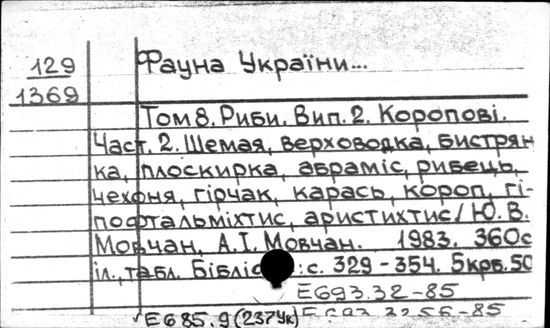 129
1369
Фауна України...
Том 8. Риби. Вип. 2. Коропові.
Част. 2. Шемая, верховодка, бистрян
ка, плоскирка, абраміс, рибець,
чехоня, гірчак, карась, короп, гі-
пофтальміхтис, аристихтис / Ю. В.
Мовчан, А.І. Мовчан. 1983. 360с
іл., табл. : с. 329-354. 5крб.50
Е693.32-85
√Е685.9(237Ук)